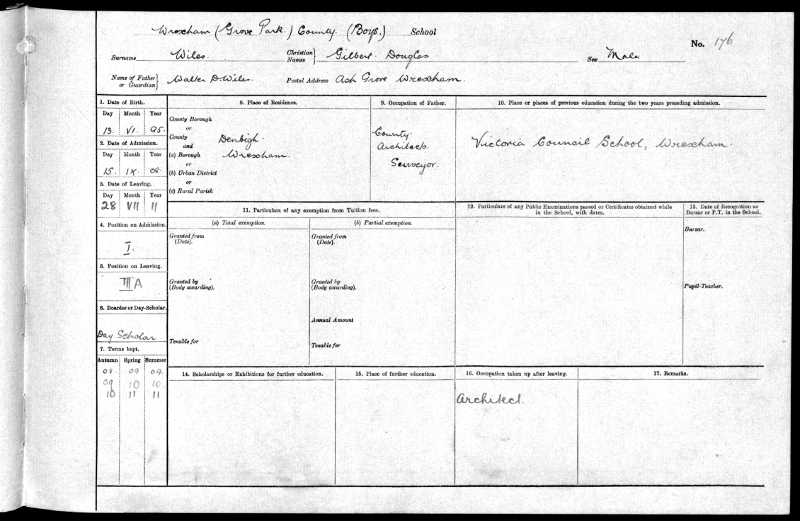 Wrexham (Grove Park) County (Boys.) School
No. 176
Surname Wiles. Christian Names Gilbert Douglas Sex Male
Name of Father or Guardian Walter D. Wiles. Postal Address Ash Grove Wrexham.
1. Date of Birth.
Day Month Year
13. VI. 95.
2. Date of Admission.
Day Month Year
15. IX. 08.
3. Date of Leaving.
Day Month Year
28 VII 11
4. Position on Admission.
I.
5. Position on Leaving.
III A
6. Boarder or Day-Scholar.
Day Scholar
7. Terms kept.
Autumn Spring Summer
08. 09 09.
09 10 10.
10 11 11
8. Place of Residence.
County Borough
or
County Denbigh.
and
(a) Borough Wrexham.
or
(b) Urban District
or
(c) Rural Parish
9. Occupation of Father.
County
Architect &
Surveyor.
10. Place or places of previous education during the two years preceding admission.
Victoria Council School, Wrexham.
11. Particulars of any exemption from Tuition fees.
(a) Total exemption.
Granted from
(Date).
Granted by
(Body awarding).
Tenable for
(b) Partial exemption.
Granted from
(Date).
Granted by
(Body awarding).
Annual Amount
Tenable for
12. Particulars of any Public Examinations passed or Certificates obtained while
in the School, with dates.
13. Date of Recognition as
Bursar or P.T. in the School.
Bursar.
Pupil-Teacher.
14. Scholarships or Exhibitions for further education.
15. Place of further education.
16. Occupation taken up after leaving.
Architect.
17. Remarks.